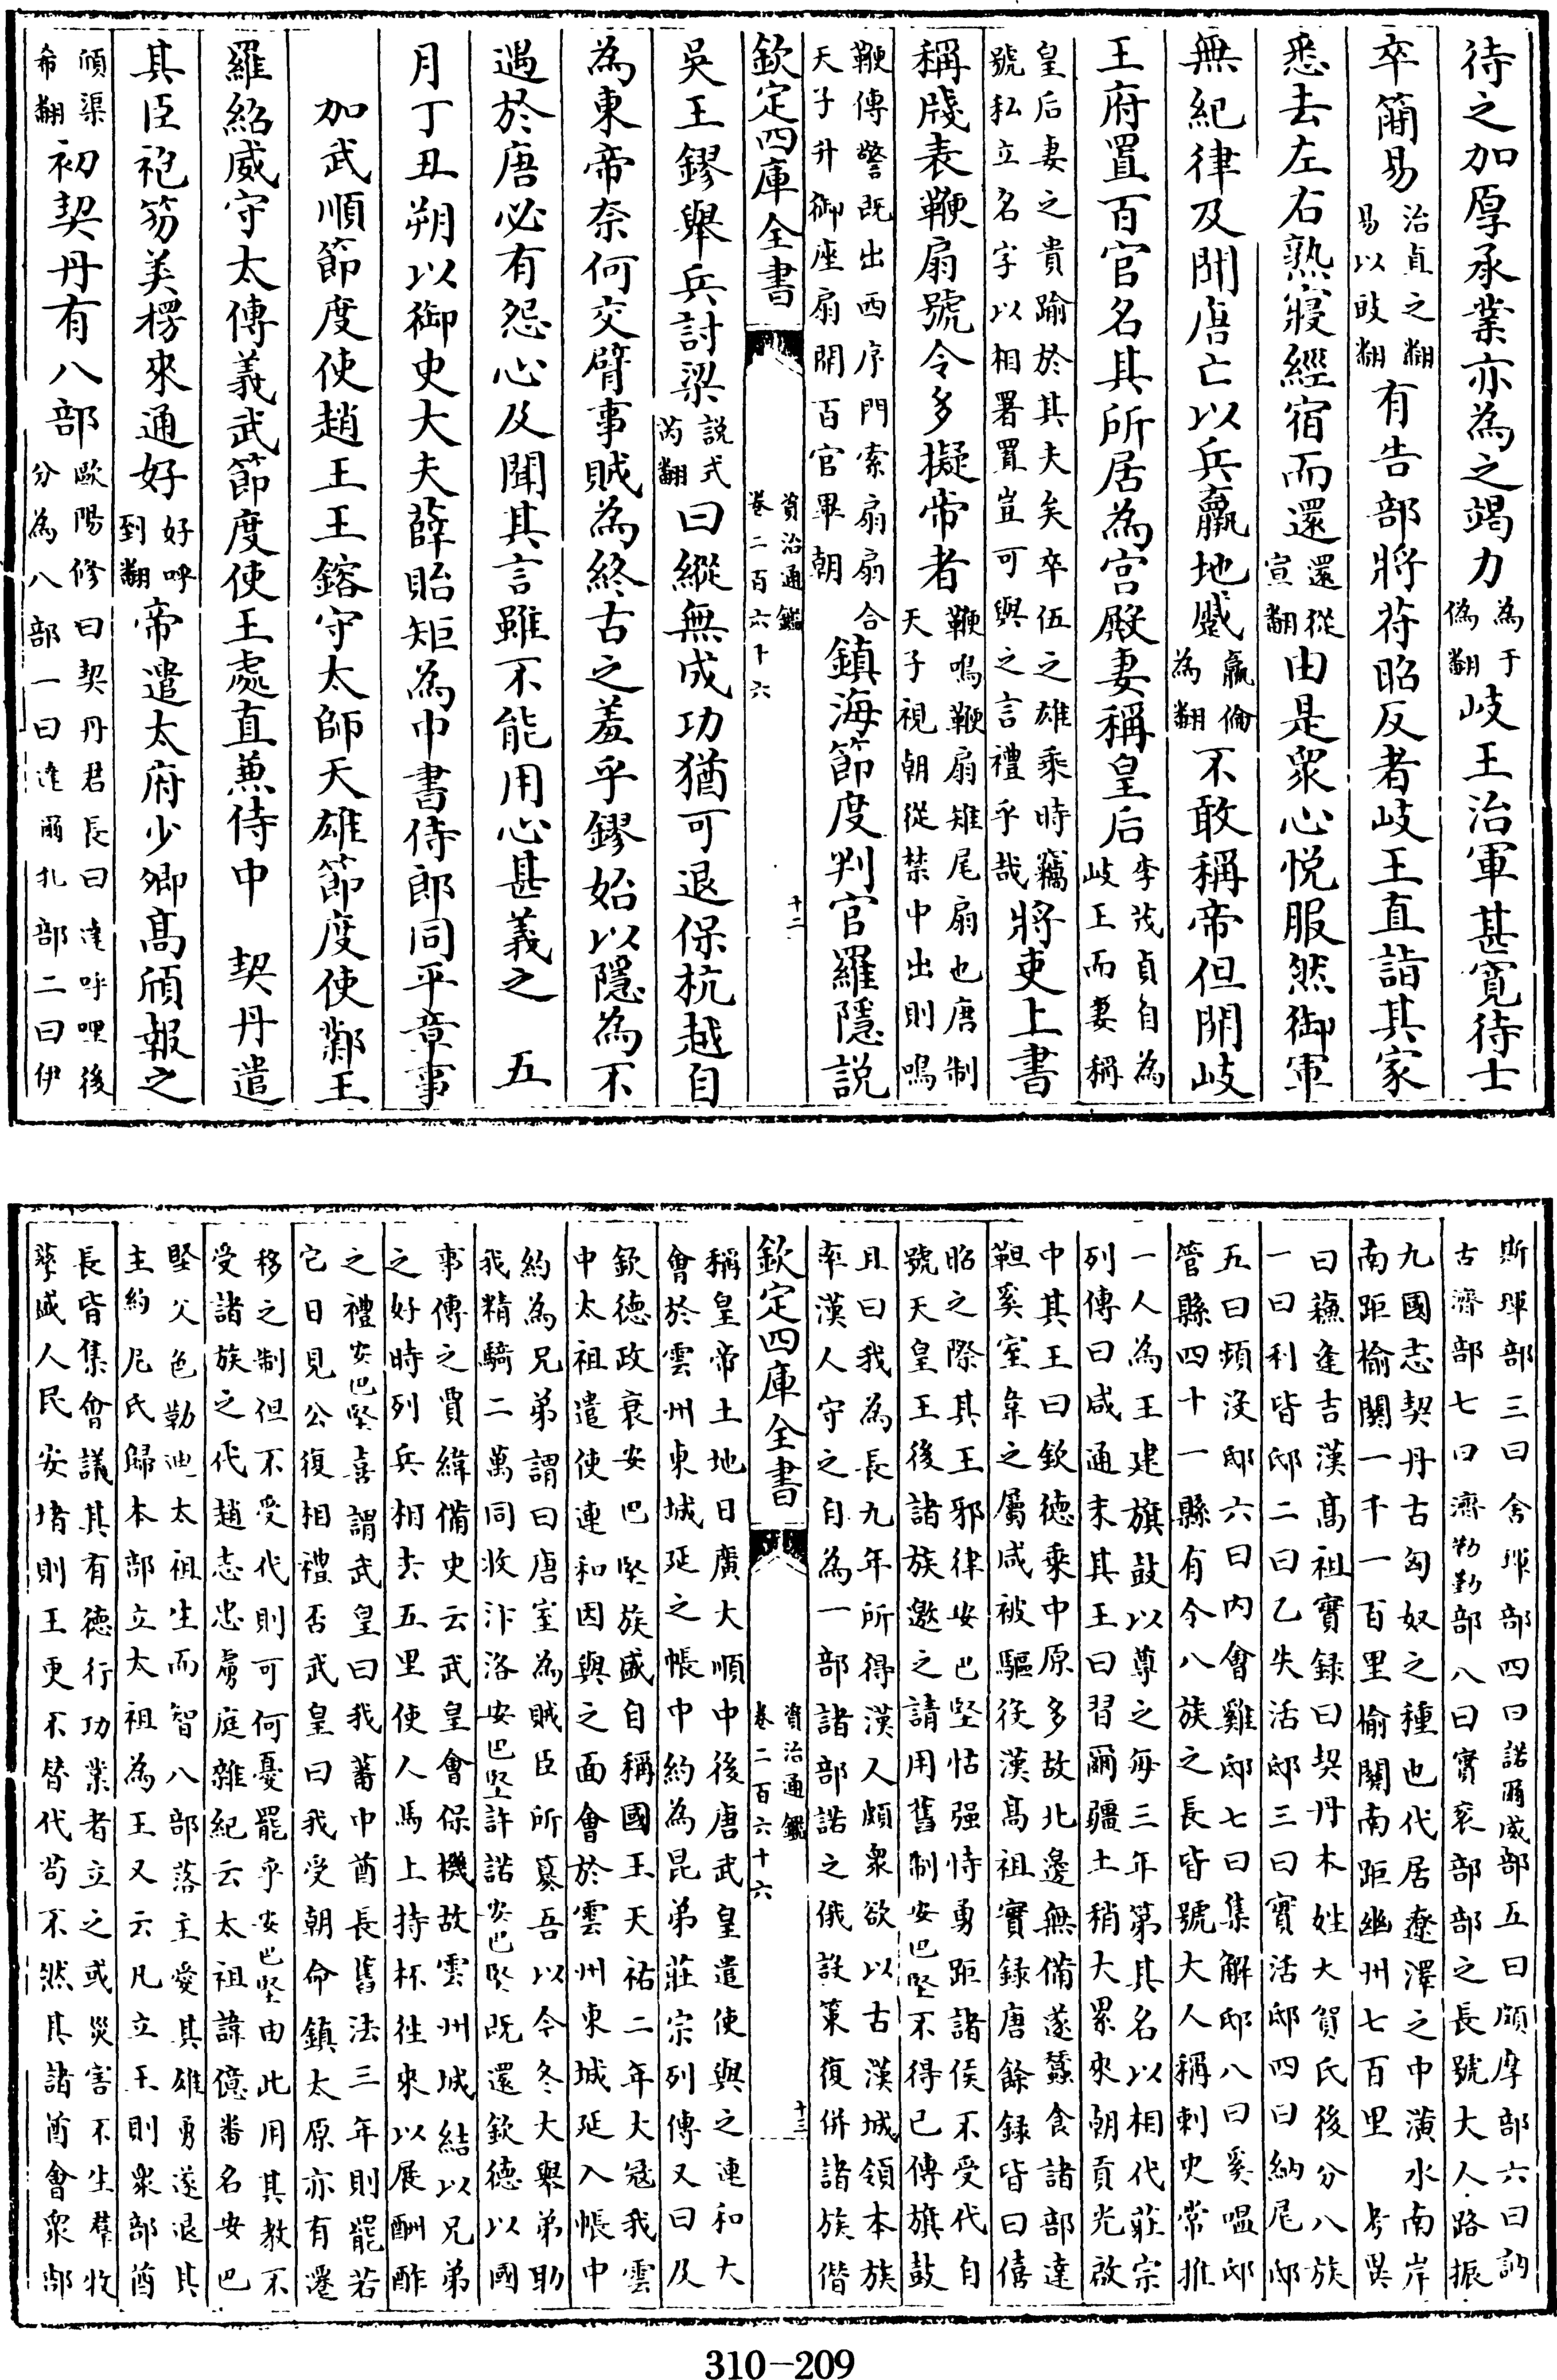 待之加厚承業亦為之竭力為于偽翻岐王治軍甚寛待士
卒簡易治直之翻易以豉翻有告部將苻昭反者岐王直詣其家
悉去左右熟寢經宿而還還從宣翻由是衆心悅服然御軍
無紀律及聞唐亡以兵羸地蹙羸倫為翻不敢稱帝但開岐
王府置百官名其所居為宫殿妻稱皇后李茂貞自為岐王而妻稱
皇后妻之貴踰於其夫矣卒伍之雄乘時竊號私立名字以相署置豈可與之言禮乎哉將吏上書
稱牋表鞭扇號令多擬帝者鞭鳴鞭扇雉尾扇也唐制天子視朝從禁中出則鳴
鞭傳警既出西序門索扇扇合天子升御座扇開百官畢朝鎮海節度判官羅隱説
欽定四庫全書 資治通鑑卷二百六十六 十二
吳王鏐舉兵討梁説式芮翻曰縱無成功猶可退保杭越自
為東帝奈何交臂事賊為終古之羞乎鏐始以隱為不
遇於唐必有怨心及聞其言雖不能用心甚義之 五
月丁丑朔以御史大夫薛貽矩為中書侍郎同平章事
加武順節度使趙王王鎔守太師天雄節度使鄴王
羅紹威守太傅義武節度使王處直兼侍中 契丹遣
其臣袍笏美楞來通好好呼到翻帝遣太府少卿髙頎報之
頎渠希翻初契丹有八部歐陽修曰契丹君長曰達呼哩後分為八部一曰達爾扎部二曰伊
斯琿部三曰舍琿部四曰諾爾威部五曰頗摩部六曰訥
古濟部七曰濟勒勤部八曰實衮部部之長號大人路振
九國志契丹古匈奴之種也代居遼澤之中潢水南岸
南距榆關一千一百里榆關南距幽州七百里 考異
曰蘓逢吉漢髙祖實録曰契丹本姓大賀氏後分八族
一曰利皆邸二曰乙失活邸三曰實活邸四曰納尾邸
五曰頻没邸六曰内會雞邸七曰集解邸八曰奚嗢邸
管縣四十一縣有令八族之長皆號大人稱刺史常推
一人為王建旗鼓以尊之每三年第其名以相代莊宗
列傳曰咸通末其王曰習爾疆土稍大累來朝貢光啟
中其王曰欽德乘中原多故北邊無備遂蠶食諸部達
靼奚室韋之屬咸被驅役漢髙祖實録唐餘録皆曰僖
昭之際其王邪律安巴堅怙强恃勇距諸侯不受代自
號天皇王後諸族邀之請用舊制安巴堅不得已傳旗鼓
且曰我為長九年所得漢人頗衆欲以古漢城領本族
率漢人守之自為一部諸部諾之俄設策復併諸族僭
欽定四庫全書 資治通鑑卷二百六十六 十三
稱皇帝土地日廣大順中後唐武皇遣使與之連和大
會於雲州東城延之帳中約為昆弟莊宗列傳又曰及
欽德政衰安巴堅族盛自稱國王天祐二年大冦我雲
中太祖遣使連和因與之面會於雲州東城延入帳中
約為兄弟謂曰唐室為賊臣所簒吾以今冬大舉弟助
我精騎二萬同收汴洛安巴堅許諾安巴堅既還欽德以國
事傳之賈緯備史云武皇會保機故雲州城結以兄弟
之好時列兵相去五里使人馬上持杯往來以展酬酢
之禮安巴堅喜謂武皇曰我蕃中酋長舊法三年則罷若
它日見公復相禮否武皇曰我受朝命鎮太原亦有遷
移之制但不受代則可何憂罷乎安巴堅由此用其教不
受諸族之代趙志忠虜庭雜紀云太祖諱億番名安巴
堅父色勒迪太祖生而智八部落主愛其雄勇遂退其
主約尼氏歸本部立太祖為王又云凡立王則衆部酋
長皆集會議其有德行功業者立之或災害不生羣牧
孳盛人民安堵則王更不替代苟不然其諸酋會衆部
310-209